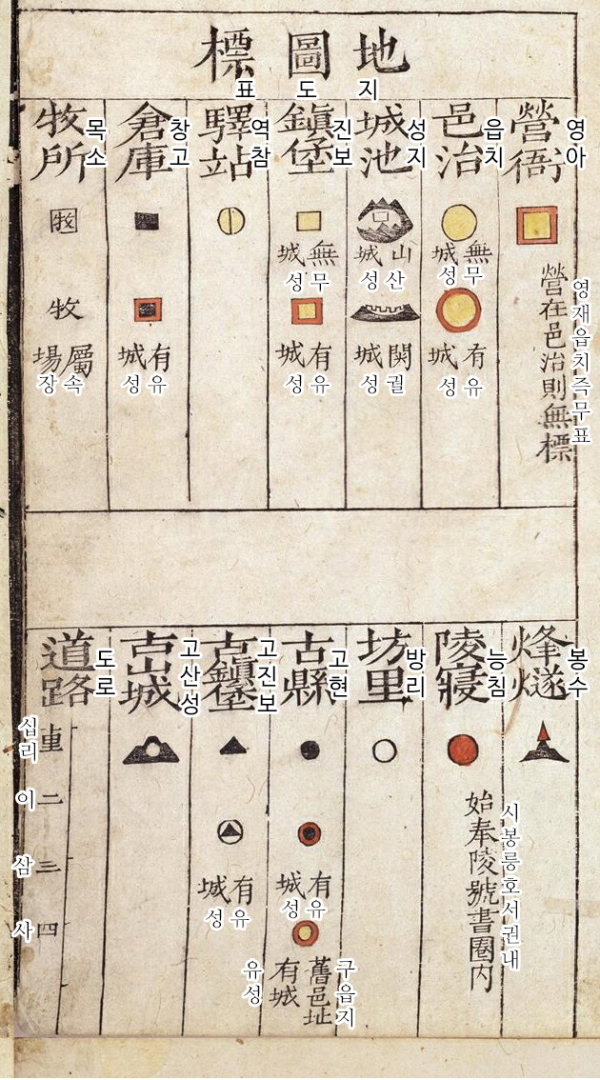 地圖標
지도표
營衙
영아
營在邑治則無標
영재읍치즉무표
邑治
읍치
無城
무성
有城
유성
城池
성지
山城
산성
闕城
궐성
鎭堡
진보
無城
무성
有城
유성
驛站
역참
倉庫
창고
有城
유성
牧所
목소
牧
牧
屬場
속장
烽燧
봉수
陵寢
능침
始奉陵號書圈内
시봉릉호서권내
坊里
방리
古縣
고현
有城
유성
舊邑址
有城
구읍지
유성
古鎭堡
고진보
有城
유성
古山城
고산성
道路
도로
십리
二
이
三
삼
四
사